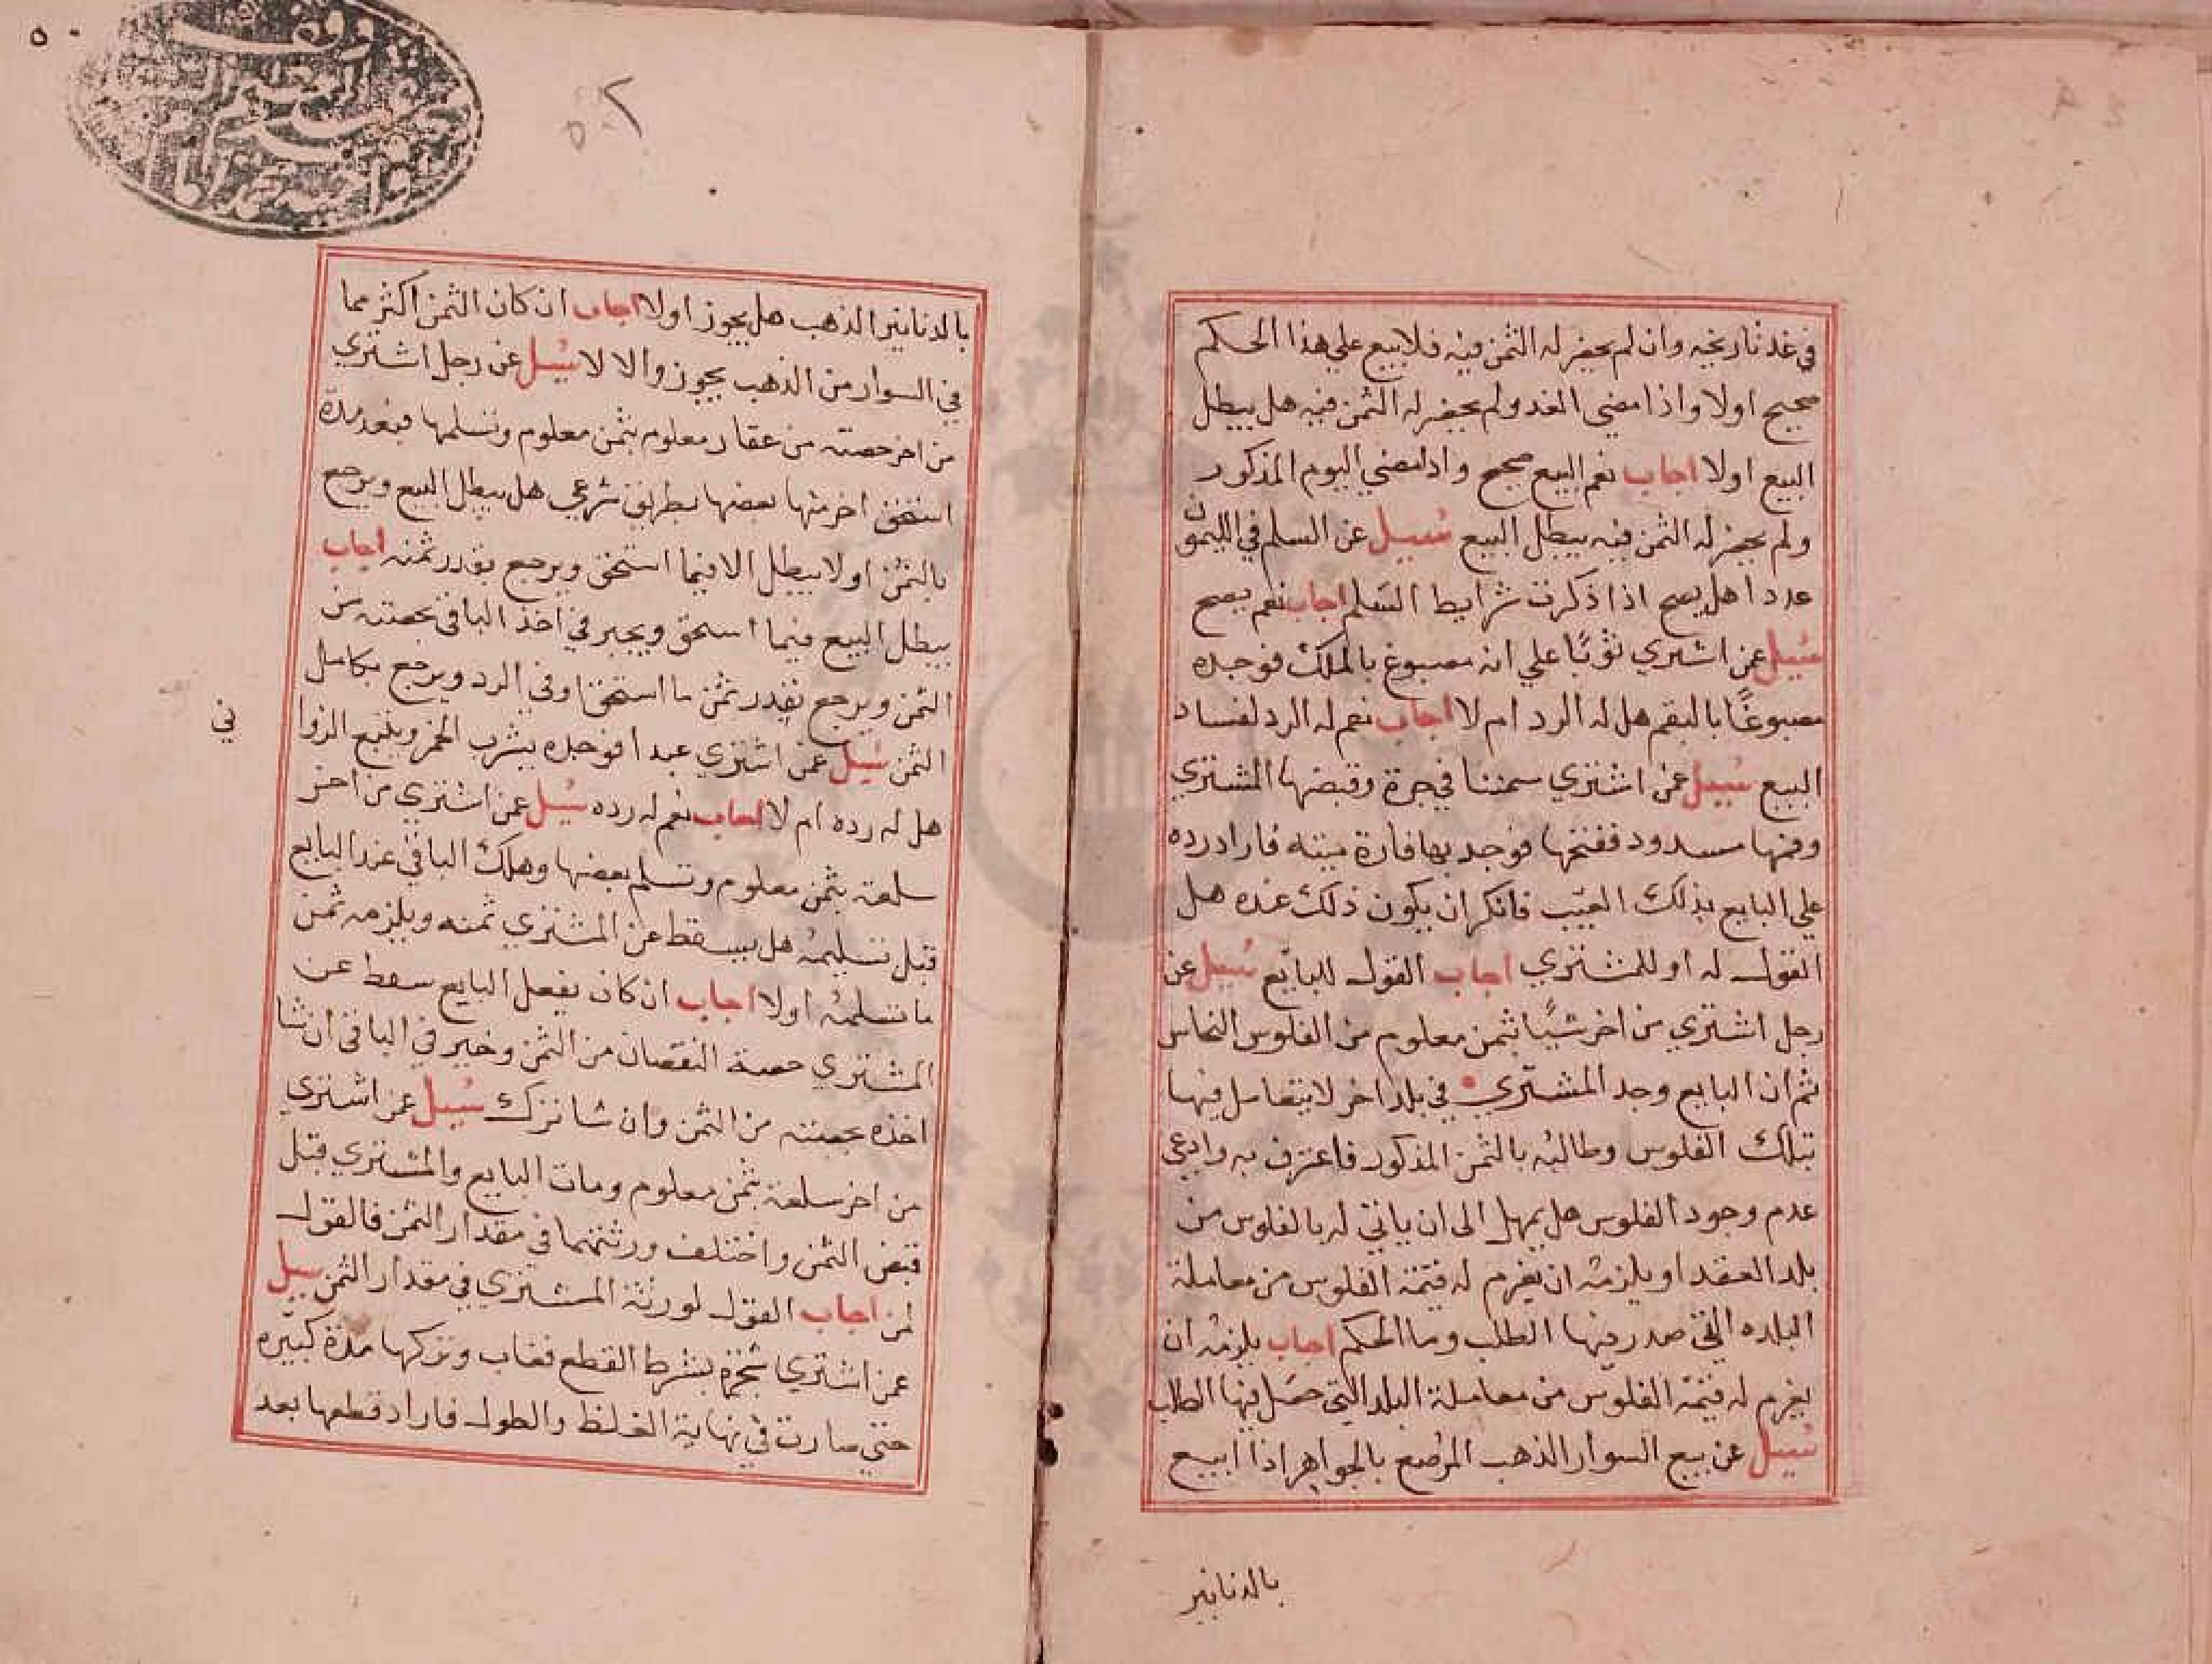 في غد تاريخيه وان لم يحضر له الثمن فيه فلا بيع علي هذا الحكم
صحيح اولا واذا مضي الغد ولم يحضر له الثمن فيه هل يبطل
البيع اولا اجاب نعم البيع صحيح واذا مضي اليوم المذكور
ولم يحضر له الثمن فيه بيطل البيع سُييل عن السلم في الليمون
عددا هل يصح اذا ذكرت شرايط السَلم اجاب نعم يصح
سُييل عمن اشتري ثوبًا علي انه مصبوغ بالملك فوجده
مصبوغًا بالبقم هل له الرد ام لا اجاب نعم له الرد لفساد
البيع سُييل عمن اشتري سمنا في جرة وقبضها المشتري
وفمها مسدود ففتحها فوجد بها فارة ميته فاراد رده
علي البايع بذلك العيب فانكر ان يكون ذلك عنده هل
القول له او للمشتري اجاب القول للبايع سُييل عن
رجل اشتري من اخر شيًا بثمن معلوم من الفلوس النحاس
ثم ان البايع وجد المشتري في بلد اخر لا يتعامل فيها
بتلك الفلوس وطالبه بالثمن المذكور فاعترف به وادعي
عدم وجود الفلوس هل يمهل الى ان ياتي له بالفلوس من
بلد العقد او يلزمه ان يغرم له قيمة الفلوس من معاملة
البلده التي صدر فيها الطلب وما الحكم اجاب يلزمه ان
يغرم له قيمة الفلوس من معاملة البلد التي حصل فيها الطلب
سُييل عن بيع السوار الذهب المرصع بالجواهر اذا ابيع
بالدنانير
٥٠
وقف
٥٠
بالدنانير الذهب هل يجوز اولا اجاب ان كان الثمن اكثر مما
في السوار من الذهب يجوز والا لا سُيل عن رجل اشتري
من اخر حصته من عقار معلوم بثمن معلوم وتسلمها فبعد مدة
استحق اخر منها بعضها بطريق شرعي هل يبطل البيع ويرجع
بالثمن اولا يبطل الا فيما استحق ويرجع بقدر ثمنه اجاب
يبطل البيع فيما استحق ويخير في اخذ الباقي بحصته من
الثمن ويرجع بقدر ثمن ما استحق او في الرد ويرجع بكامل
الثمن سُيل عمن اشتري عبدا فوجده يشرب الخمر ويتبع الزوا
ني
هل له رده ام لا اجاب نعم له رده سُيل عمن اشتري من اخر
سلعة بثمن معلوم وتسلم بعضها وهلك الباقي عند البايع
قبل تسليمه هل يسقط عن المشتري ثمنه ويلزمه ثمن
ما تسلمه اولا اجاب ان كان بفعل البايع سقط عن
المشتري حصة النقصان من الثمن وخير في الباقي ان شا
اخذه بحصته من الثمن وان شا ترك سُييل عمن اشتري
من اخر سلعة بثمن معلوم ومات البايع والمشتري قبل
قبض الثمن واختلف ورثتهما في مقدار الثمن فالقول
لمن اجاب القول لورثة المشتري في مقدار الثمن سيل
عمن اشتري شجرة بشرط القطع فغاب وتركها مدة كبيره
حتي صارت في نهاية الغلظ والطول فاراد قطعها بعد